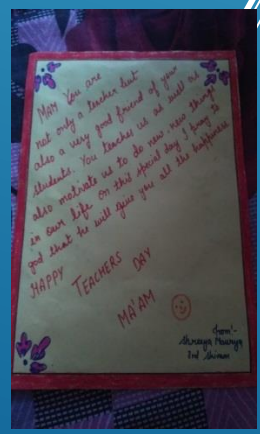 MAM You are
not only a teacher but
also a very good friend of your
students. You teaches us as well as
also motivate us to do new-new things
in our life on this special day I pray to
god that he will give you all the happiness
HAPPY TEACHERS DAY
MA'AM
from:-
Shreya Maurya
2nd Shinan